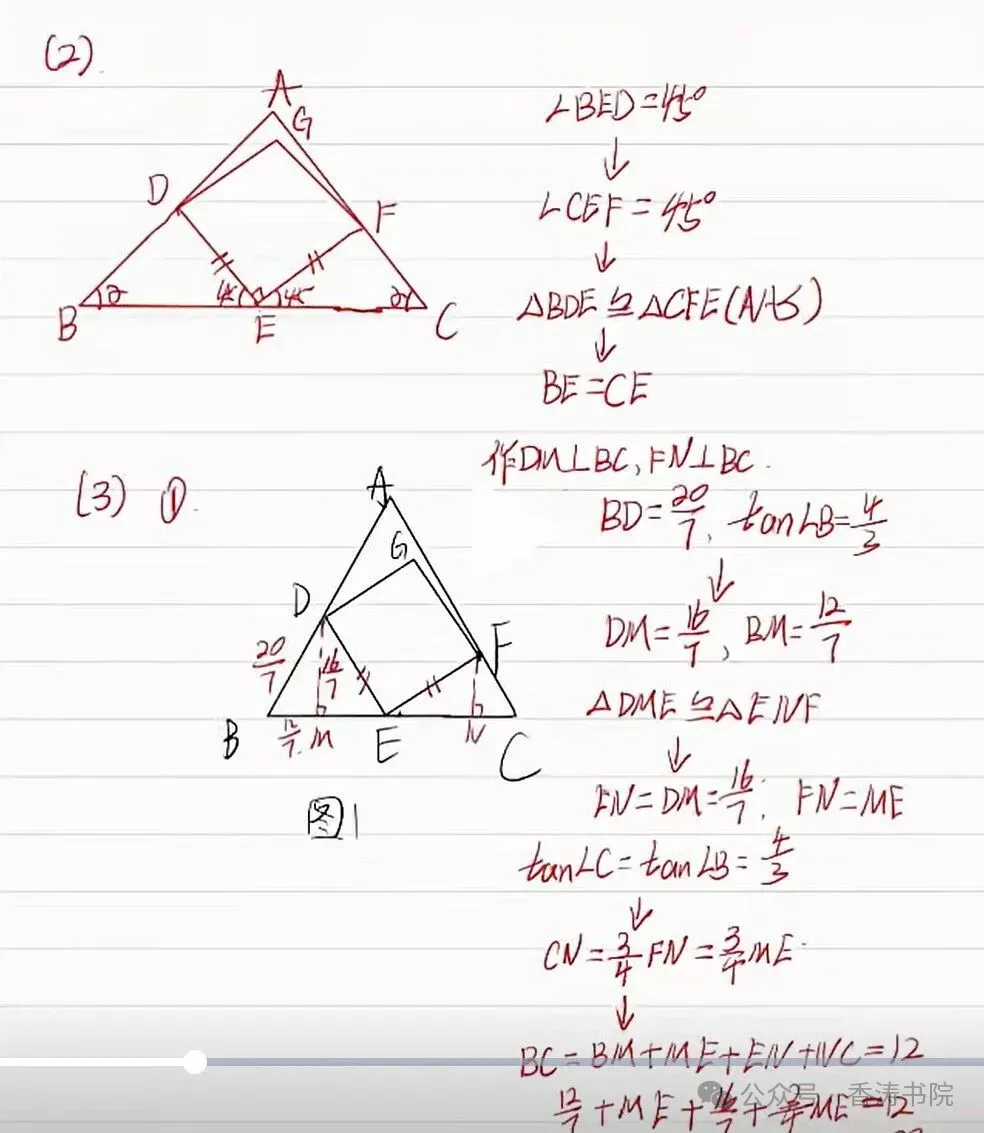 (2).
A
G
D
F
B
2
45
45
2
C
E
∠BED=45°
↓
∠CEF=45°
↓
△BDE≌△CFE(AAS)
↓
BE=CE
(3) ①.
作DM⊥BC,FN⊥BC.
BD=20/7, tan∠B=4/3
↓
DM=16/7, BM=12/7
△DME≌△ENF
↓
EN=DM=16/7, FN=ME
tan∠C=tan∠B=4/3
↓
CN=3/4FN=3/4ME.
↓
BC=BM+ME+EN+NC=12
12/7+ME+16/7+3/4ME=12
A
G
D
F
20/7
16/7
B
12/7
M
E
N
C
图1
公众号 香涛书院